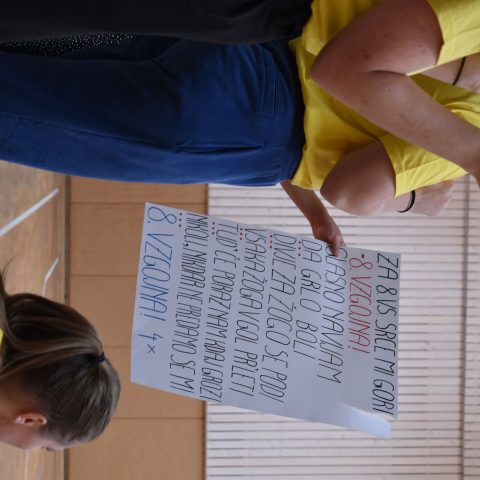 ZA 8 VS SPREMI GORI
8. VZGOJNA!
GLASNO NAVIJAM
DA GRLO BOLI
DIVJE ZA ŽOGO SE PODI
VSAKA ŽOGA V GOL PRILETI
TUD' ČE PORAZ NAM KDAJ GROZI
NIKOLI, NIKDAR NE PREDAMO SE MI
8. VZGOJNA! 4x